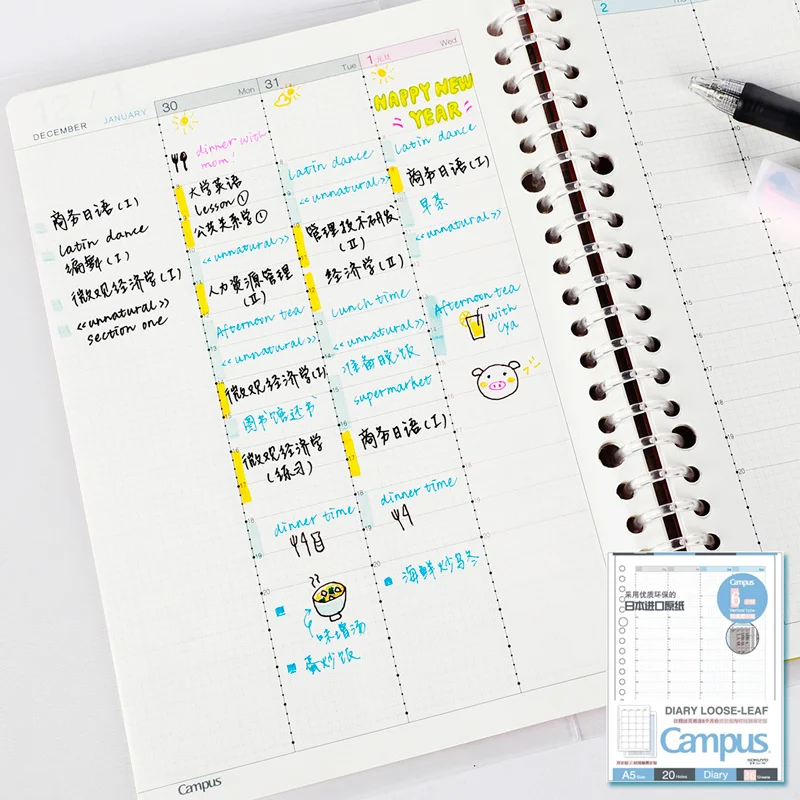 DECEMBER JANUARY
30 Mon
31 Tue
1 元旦 Wed
2
商务日语(I)
latin dance
编舞(I)
微观经济学(I)
<<unnatural>>
section one
dinner with
mom!
大学英语
Lesson①
公共关系学①
<<unnatural>>
人力资源管理
(II)
Afternoon tea
<<unnatural>>
微观经济学(I)
图书馆还书
微观经济学
(练习)
dinner time
味增汤
蛋炒饭
latin dance
<<unnatural>>
管理技术研发
(II)
经济学(II)
lunch time
<<unnatural>>
准备晚饭
supermarket
商务日语(I)
dinner time
海鲜炒乌冬
HAPPY NEW
YEAR
latin dance
商务日语(I)
早茶
<<unnatural>>
Afternoon tea
with
Cya
Campus
Campus
6
采用优质环保的
日本进口原纸
DIARY LOOSE-LEAF
Campus
KOKUYO
A5 Size 20 Holes Diary Sheets